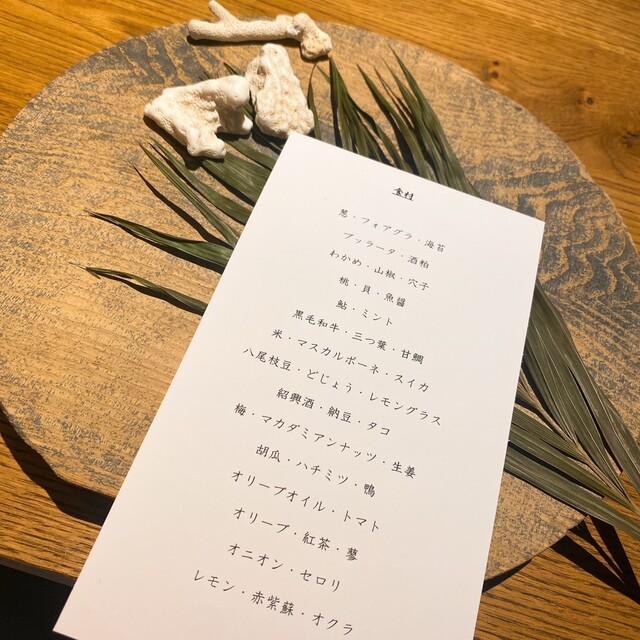 食材
葱・フォアグラ・海苔
ブッラータ・酒粕
わかめ・山椒・穴子
桃・貝・魚醤
鮎・ミント
黒毛和牛・三つ葉・甘鯛
米・マスカルポーネ・スイカ
八尾枝豆・どじょう・レモングラス
紹興酒・納豆・タコ
梅・マカダミアンナッツ・生姜
胡瓜・ハチミツ・鴨
オリーブオイル・トマト
オリーブ・紅茶・蓼
オニオン・セロリ
レモン・赤紫蘇・オクラ